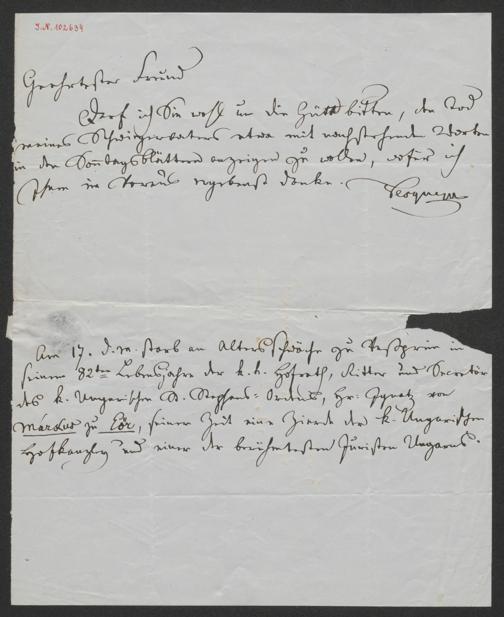 J.N. 102634
Geehrtester Freund
Darf ich Sie wohl um die Güte bitten, den Tod
meines Schwiegervaters etwa mit nachstehenden Worten
in den Sonntagsblättern anzeigen zu wollen, wofür ich
Ihnen im Voraus ergebenst danke.
Am 17. d. M. starb an Altersschwäche zu Veszprim in
seinem 82ten Lebensjahre der k. k. Hofrath, Ritter und Secretär
des k. Ungarischen St. Stephans-Ordens, Hr. Ignatz von
Márkus zu Eör, seiner Zeit eine Zierde der k. Ungarischen
Hofkanzley und einer der berühmtesten Juristen Ungarns.